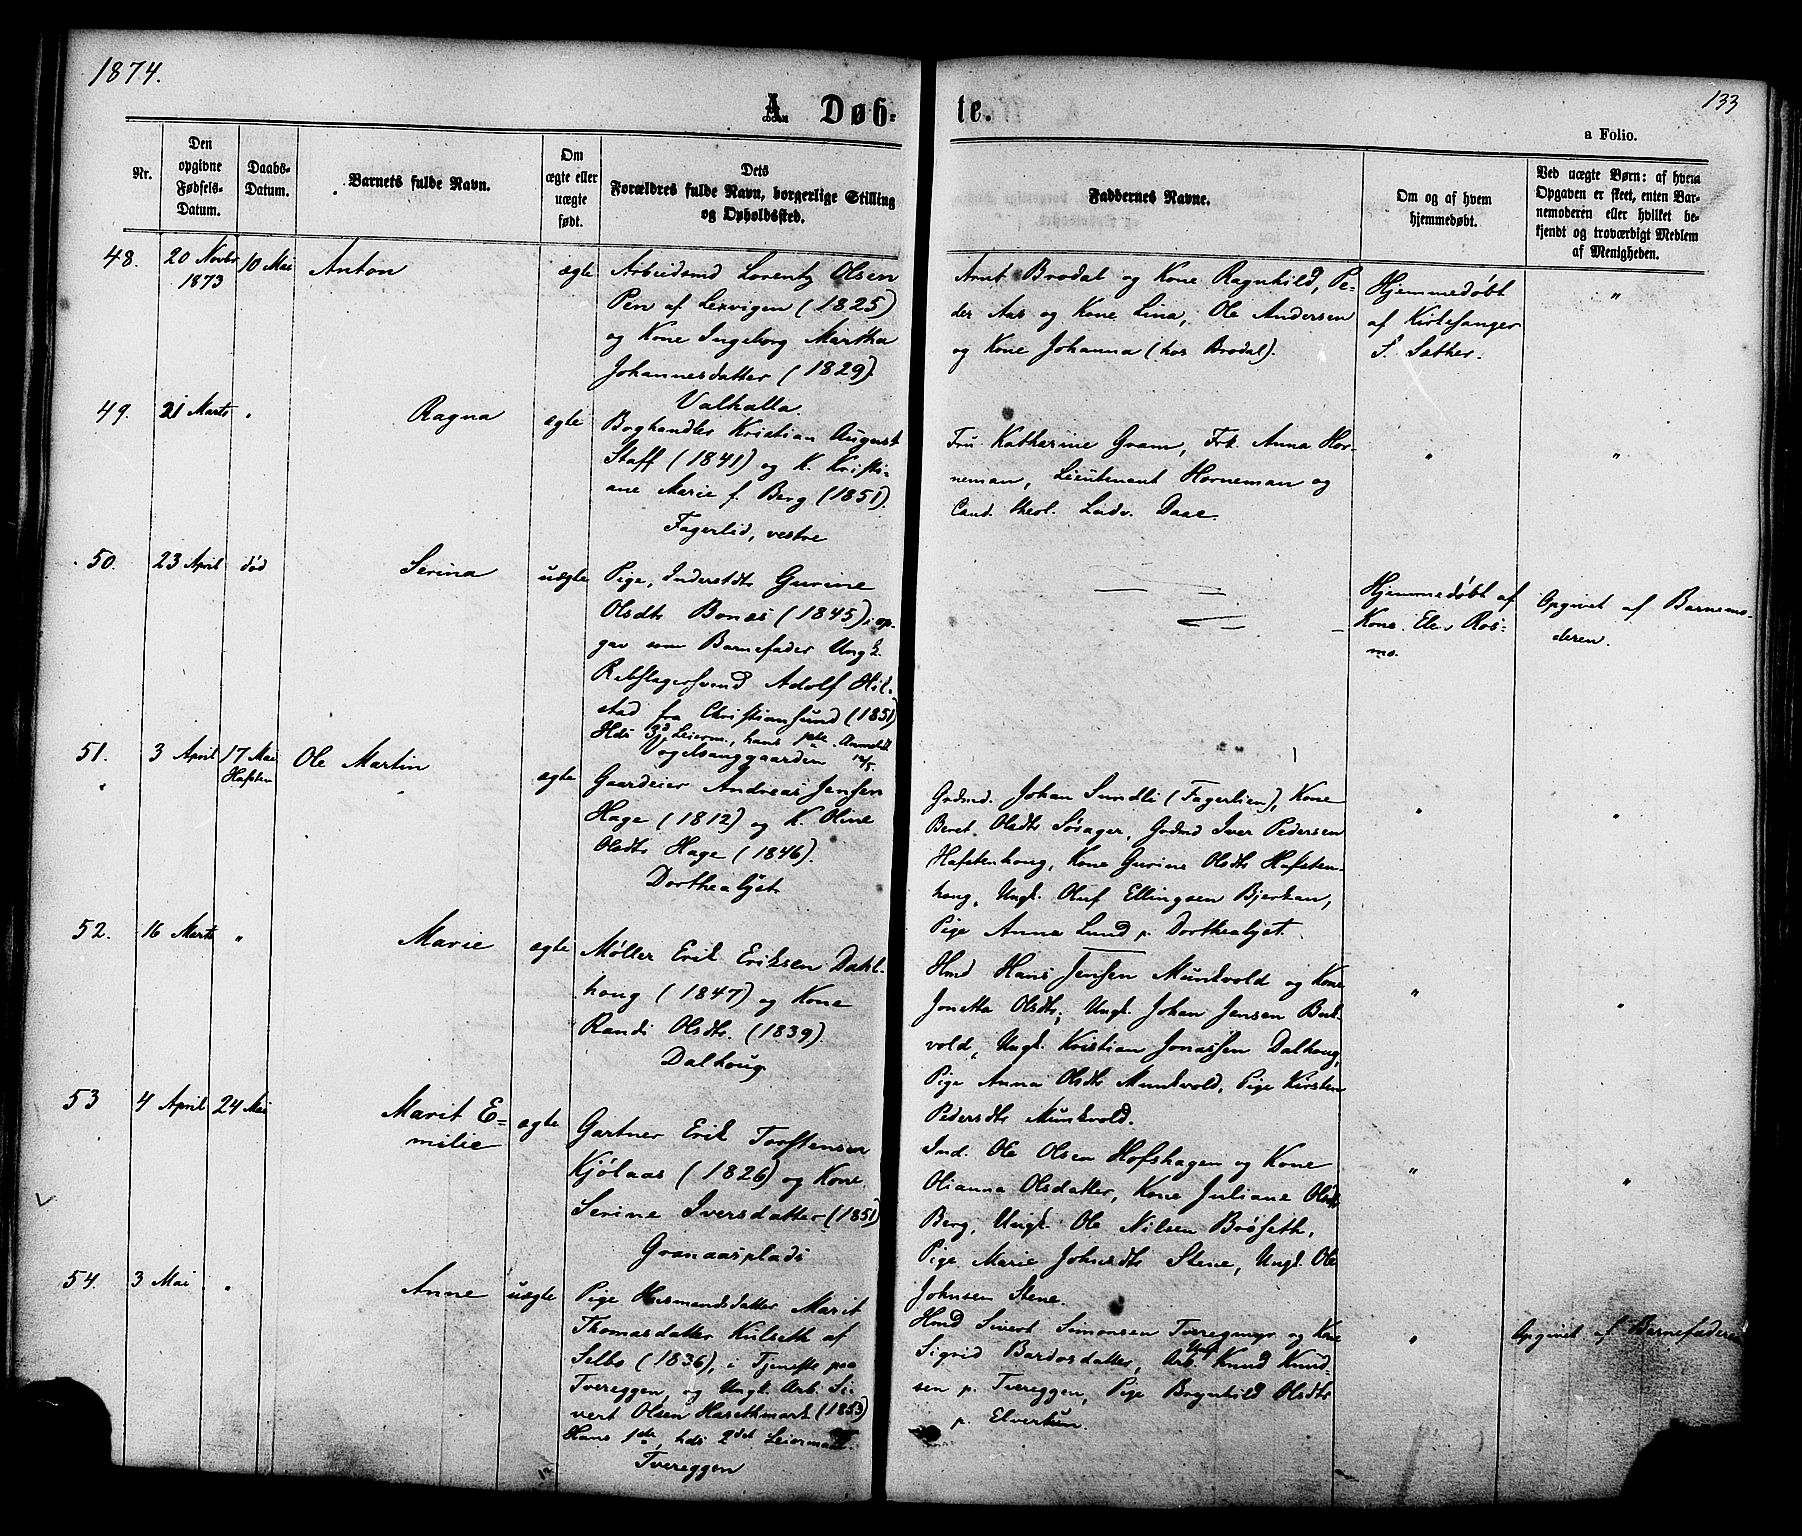 1874.
133
A. Døb-
te.
a Folio.
Nr.
Den
opgivne
Fødsels-
Datum.
Daabs-
Datum.
Barnets fulde Navn.
Om
ægte eller
uægte
født.
Dets
Forældres fulde Navn, borgerlige Stilling
og Opholdssted.
Faddernes Navne.
Om og af hvem
hjemmedøbt.
Ved uægte Børn: af hvem
Opgaven er skeet, enten Bar-
nemoderen eller hvilket be-
kjendt og troværdigt Medlem
af Menigheden.
48.
20 Novbr
1873
10 Mai
Anton
ægte
Arbeidsmd Lorentz Olsen
Pen af Lexvigen (1825)
og Kone Ingeborg Martha
Johannesdatter (1829).
Valhalla.
Arnt Brodal og Kone Ragnhild, Pe-
der Aas og Kone Lina, Ole Andersen
og Kone Johanna (hos Brodal).
Hjemmedøbt
af Kirkesanger
S. Sæther.
"
49.
21 Marts
"
Ragna
ægte
Boghandler Kristian August
Staff (1841) og K. Kristi-
ane Marie f. Berg (1851).
Fagerlid, vestre
Fru Katharine Gram, Frk. Anna Hor-
neman, Lieutenant Horneman og
Cand. theol. Ludv. Daae.
"
"
50.
23 April
død
Serina
uægte
Pige, Inderstdtr Gurine
Olsdtr Bonæs (1845), op-
gav som Barnefader Ungk.
Rebslagersvend Adolf Hil-
stad fra Christiansund (1851)
Hds 3d Leierm., hans 1ste. Anmeldt
Vogelsanggaarden 12/5.
Hjemmedøbt af
Kone Ros-
mo.
Opgivet af Barnemo-
deren.
51.
3 April
17 Mai
Hafsten
Ole Martin
ægte
Gaardeier Andreas Jensen
Hage (1812) og K. Oline
Olsdtr Hage (1846).
Dorthealyst
Grdmd. Johan Sundli (Fagerlien), Kone
Beret Olsdtr Sørager, Grdmd Iver Pedersen
Hafstenhoug, Kone Gurine Olsdtr Hafsten-
houg, Ungk. Oluf Ellingsen Bjerkan,
Pige Anna Lund p. Dorthealyst.
"
"
52.
16 Marts
"
Marie
ægte
Møller Erik Eriksen Dahl-
houg (1847) og Kone
Randi Olsdtr. (1839).
Dalhoug
Hmd Hans Jensen Munkvold og Kone
Jonetta Olsdtr, Ungk. Johan Jensen Buk-
vold, Ungk. Kristian Jonassen Dalhoug,
Pige Anna Olsdtr Munkvold, Pige Kirsten
Pedersdtr Munkvold.
"
"
53
4 April
24 Mai
Marit E-
milie
ægte
Gartner Erik Torstensen
Kjølaas (1826) og Kone
Serine Iversdatter (1851)
Granaasplads
Ind. Ole Olsen Hofshagen og Kone
Olianna Olsdatter, Kone Juliane Olsdtr
Berg, Ungk. Ole Nilsen Brøseth,
Pige Marie Johnsdtr Stene, Ungk. Ole
Johnsen Stene.
"
"
54.
3 Mai
"
Anne
uægte
Pige Husmandsdatter Marit
Thomasdatter Kulseth af
Selbo (1836), i Tjeneste paa
Tvereggen, og Ungk. Arb. Si-
vert Olsen Hasethmark (1853)
Hans 1ste, hds 2det Leiermaal.
Tvereggen
Hmd Sivert Simonsen Tveregmyr og Kone
Sigrid Bardosdatter, Ungk. Arb. Knud Knud-
sen p. Tvereggen, Pige Brynhild Olsdtr
p. Elverhøu
"
Opgivet af Barnefaderen